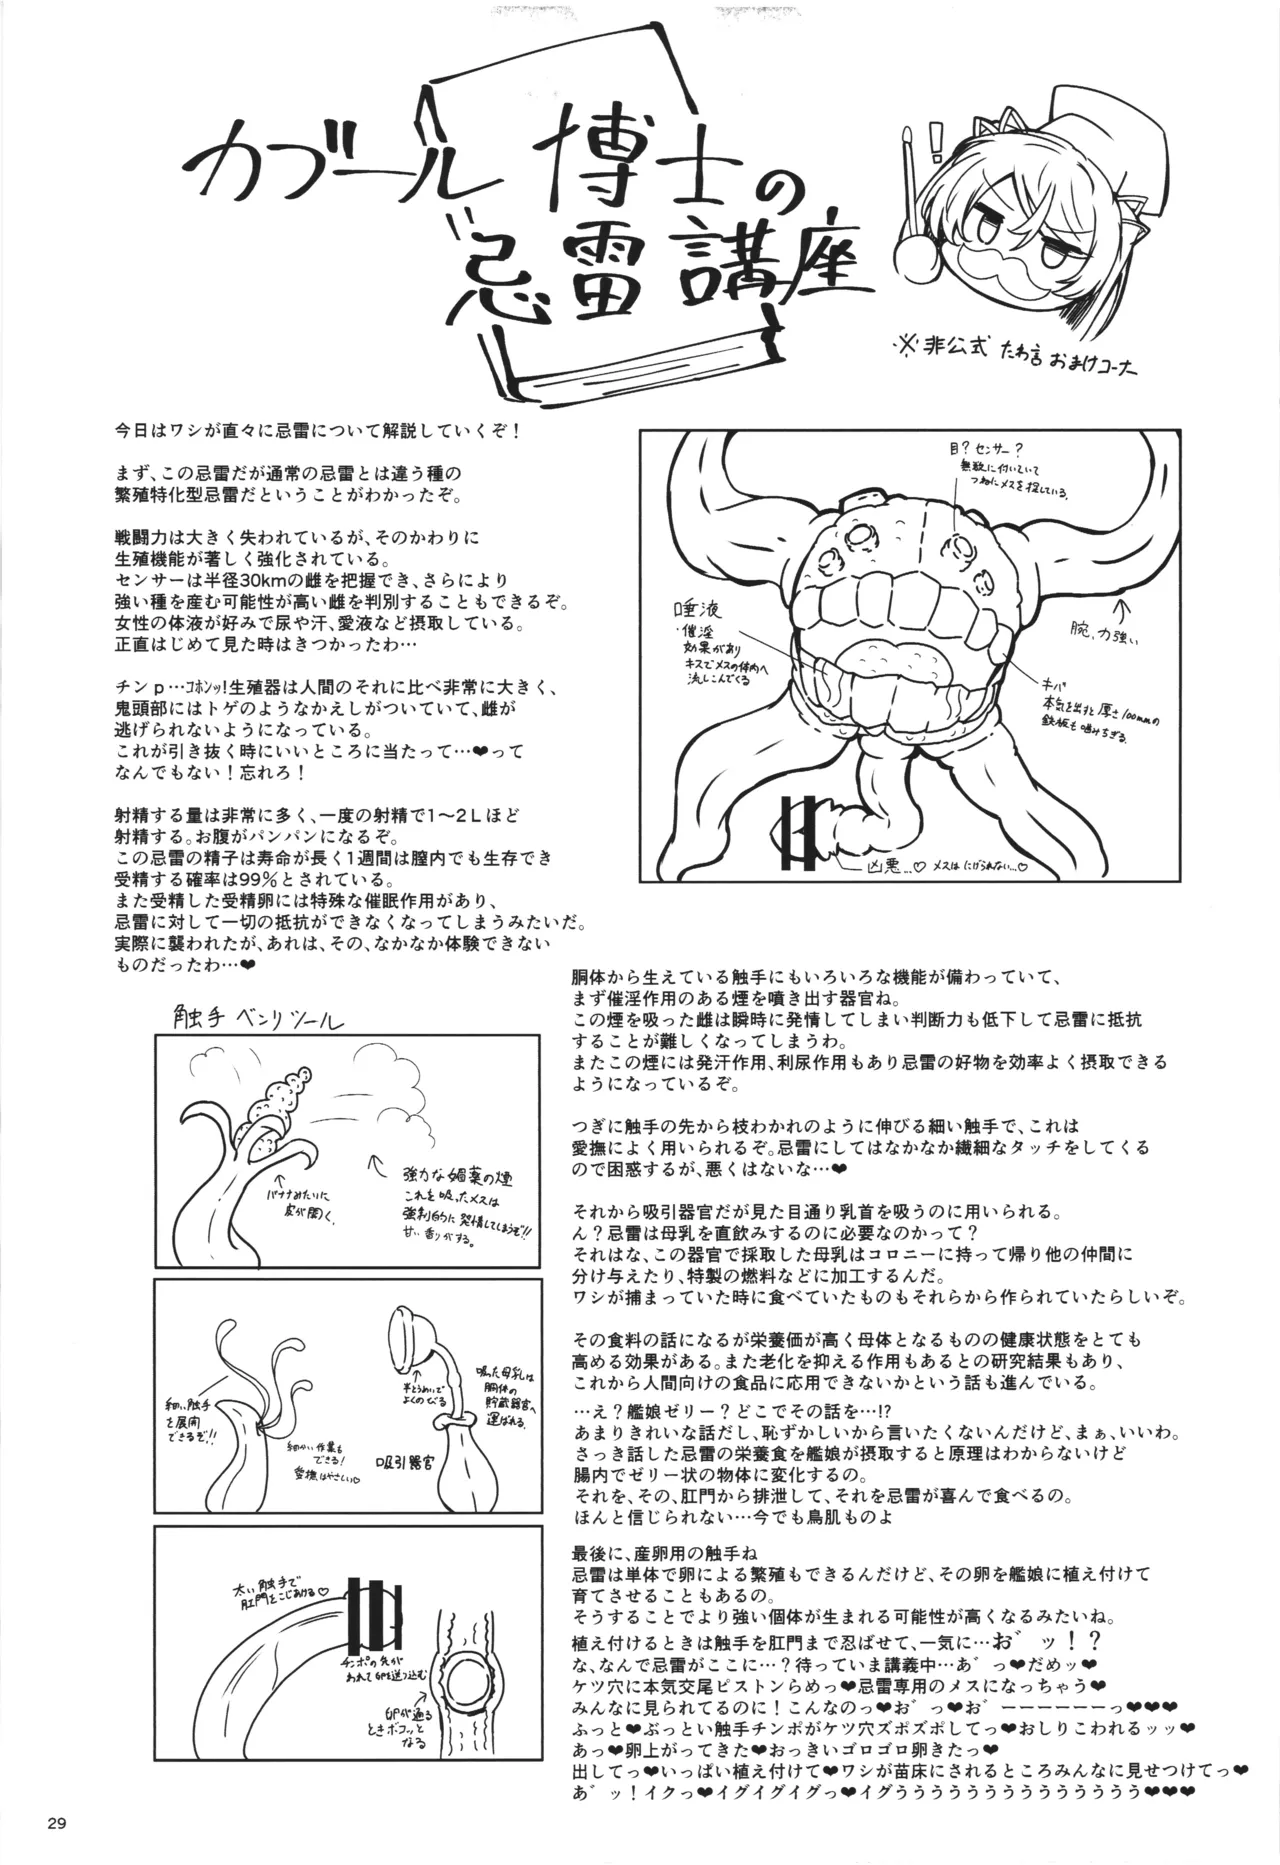 カブール博士の
忌雷講座
!
※非公式 たわ言 おまけコーナー
今日はワシが直々に忌雷について解説していくぞ！
まず、この忌雷だが通常の忌雷とは違う種の
繁殖特化型忌雷だということがわかったぞ。
戦闘力は大きく失われているが、そのかわりに
生殖機能が著しく強化されている。
センサーは半径30kmの雌を把握でき、さらにより
強い種を産む可能性が高い雌を判別することもできるぞ。
女性の体液が好みで尿や汗、愛液など摂取している。
正直はじめて見た時はきつかったわ…
チンｐ…ｺﾎﾝｯ!生殖器は人間のそれに比べ非常に大きく、
鬼頭部にはトゲのようなかえしがついていて、雌が
逃げられないようになっている。
これが引き抜く時にいいところに当たって…❤って
なんでもない！忘れろ！
射精する量は非常に多く、一度の射精で1～2Ｌほど
射精する。お腹がパンパンになるぞ。
この忌雷の精子は寿命が長く1週間は膣内でも生存でき
受精する確率は99％とされている。
また受精した受精卵には特殊な催眠作用があり、
忌雷に対して一切の抵抗ができなくなってしまうみたいだ。
実際に襲われたが、あれは、その、なかなか体験できない
ものだったわ…❤
目？センサー？
無数に付いていて
つねにメスを捉している。
唾液
・催淫
効果があり
キスでメスの体内へ
流しこんでくる
腕、力強い
キバ
本気を出すと厚さ100mmの
鉄板も噛みちぎる。
凶悪…♡ メスはにげられない…♡
胴体から生えている触手にもいろいろな機能が備わっていて、
まず催淫作用のある煙を噴き出す器官ね。
この煙を吸った雌は瞬時に発情してしまい判断力も低下して忌雷に抵抗
することが難しくなってしまうわ。
またこの煙には発汗作用、利尿作用もあり忌雷の好物を効率よく摂取できる
ようになっているぞ。
つぎに触手の先から枝わかれのように伸びる細い触手で、これは
愛撫によく用いられるぞ。忌雷にしてはなかなか繊細なタッチをしてくる
ので困惑するが、悪くはないな…❤
それから吸引器官だが見た目通り乳首を吸うのに用いられる。
ん？忌雷は母乳を直飲みするのに必要なのかって？
それはな、この器官で採取した母乳はコロニーに持って帰り他の仲間に
分け与えたり、特製の燃料などに加工するんだ。
ワシが捕まっていた時に食べていたものもそれらから作られていたらしいぞ。
その食料の話になるが栄養価が高く母体となるものの健康状態をとても
高める効果がある。また老化を抑える作用もあるとの研究結果もあり、
これから人間向けの食品に応用できないかという話も進んでいる。
…え？艦娘ゼリー？どこでその話を…!?
あまりきれいな話だし、恥ずかしいから言いたくないんだけど、まぁ、いいわ。
さっき話した忌雷の栄養食を艦娘が摂取すると原理はわからないけど
腸内でゼリー状の物体に変化するの。
それを、その、肛門から排泄して、それを忌雷が喜んで食べるの。
ほんと信じられない…今でも鳥肌ものよ
最後に、産卵用の触手ね
忌雷は単体で卵による繁殖もできるんだけど、その卵を艦娘に植え付けて
育てさせることもあるの。
そうすることでより強い個体が生まれる可能性が高くなるみたいね。
植え付けるときは触手を肛門まで忍ばせて、一気に…お゛ッ！？
な、なんで忌雷がここに…？待っていま講義中…あ゛っ❤だめッ❤
ケツ穴に本気交尾ピストンらめっ❤忌雷専用のメスになっちゃう❤
みんなに見られてるのに！こんなのっ❤お゛っ❤お゛ーーーーーーっ❤❤❤
ふっと❤ぶっとい触手チンポがケツ穴ズポズポしてっ❤おしりこわれるッッ❤
あっ❤卵上がってきた❤おっきいゴロゴロ卵きたっ❤
出してっ❤いっぱい植え付けて❤ワシが苗床にされるところみんなに見せつけてっ❤
あ゛ッ！イクっ❤イグイグイグっ❤イグうううううううううううううう❤❤❤
触手 ベンリツール
バナナみたいに
皮が開く.
強力な媚薬の煙
これを吸ったメスは
強制的に発情してしまうぞ!!
甘い香りがする。
細い触手
を展開
できるぞ!!
細かい作業も
できる！
愛撫はやさしい♡
半とうめいで
よくのびる
吸引器官
吸った母乳は
胴体の
貯蔵器官へ
運ばれる.
太い触手で
肛門をこじあける♡
チンポの先が
われて卵を送り込む
卵が通る
ときボコッと
なる
29